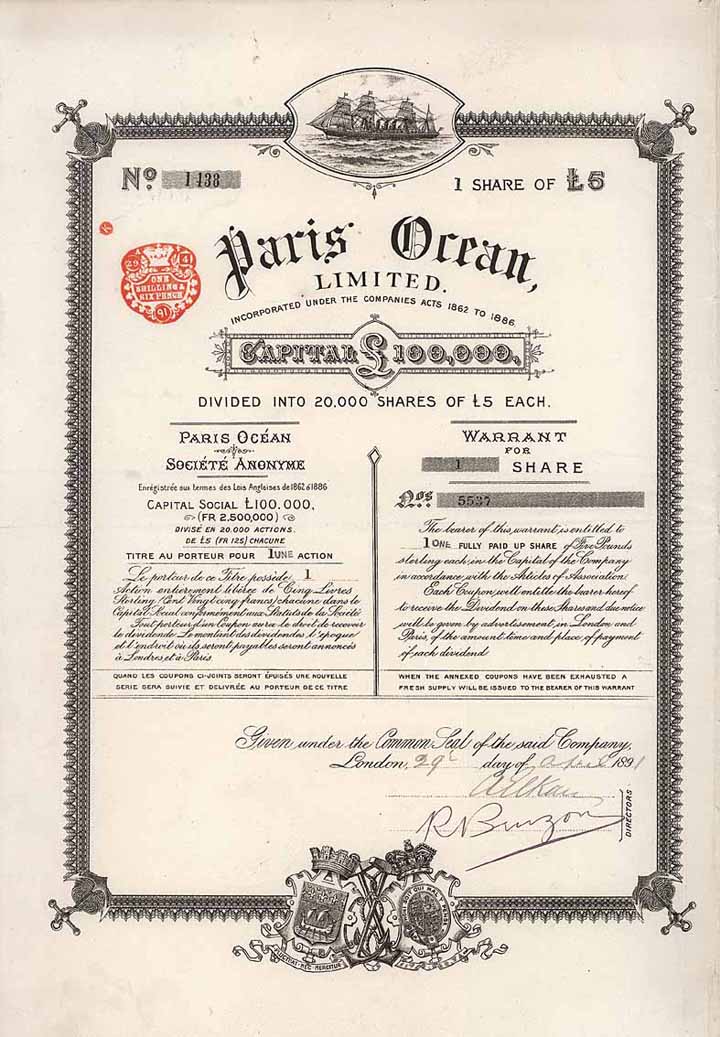 No 1438
1 SHARE OF £5
Paris Ocean,
LIMITED.
INCORPORATED UNDER THE COMPANIES ACTS 1862 TO 1886.
29 4
ONE
SHILLING &
SIX PENCE
91
CAPITAL £100,000,
DIVIDED INTO 20.000 SHARES OF £5 EACH.
PARIS OCÉAN
SOCIÉTÉ ANONYME
Enrégistrée aux termes des Lois Anglaises de 1862 à 1886
CAPITAL SOCIAL £100.000,
(FR 2,500,000)
DIVISÉ EN 20.000 ACTIONS.
DE £5 (FR 125) CHACUNE
TITRE AU PORTEUR POUR 1 UNE ACTION
Le porteur de ce Titre possède 1
Action entièrement libérée de Cinq Livres
Sterling (Cent Vingt cinq francs) chacune dans le
Capital Social conformément aux Statuts de la Société
Tout porteur d'un Coupon aura le droit de recevoir
le dividende. Le montant des dividendes, l'époque
et l'endroit où ils seront payables seront annoncés
à Londres, et à Paris
QUAND LES COUPONS CI-JOINTS SERONT ÉPUISÉS UNE NOUVELLE
SERIE SERA SUIVIE ET DELIVRÉE AU PORTEUR DE CE TITRE
WARRANT
FOR
1 SHARE
Nos 5537
The bearer of this warrant, is entitled to
1 ONE FULLY PAID UP SHARE of Five Pounds
sterling each, in the Capital of the Company
in accordance, with the Articles of Association.
Each Coupon, will entitle the bearer hereof
to receive the Dividend on these Shares and due notice
will be given by advertisement, in London and
Paris, of the amount time and place, of payment
of each dividend
WHEN THE ANNEXED COUPONS HAVE BEEN EXHAUSTED A
FRESH SUPPLY WILL BE ISSUED TO THE BEARER OF THIS WARRANT
Given under the Common Seal of the said Company,
London, 29 day of April 1891
DIRECTORS.